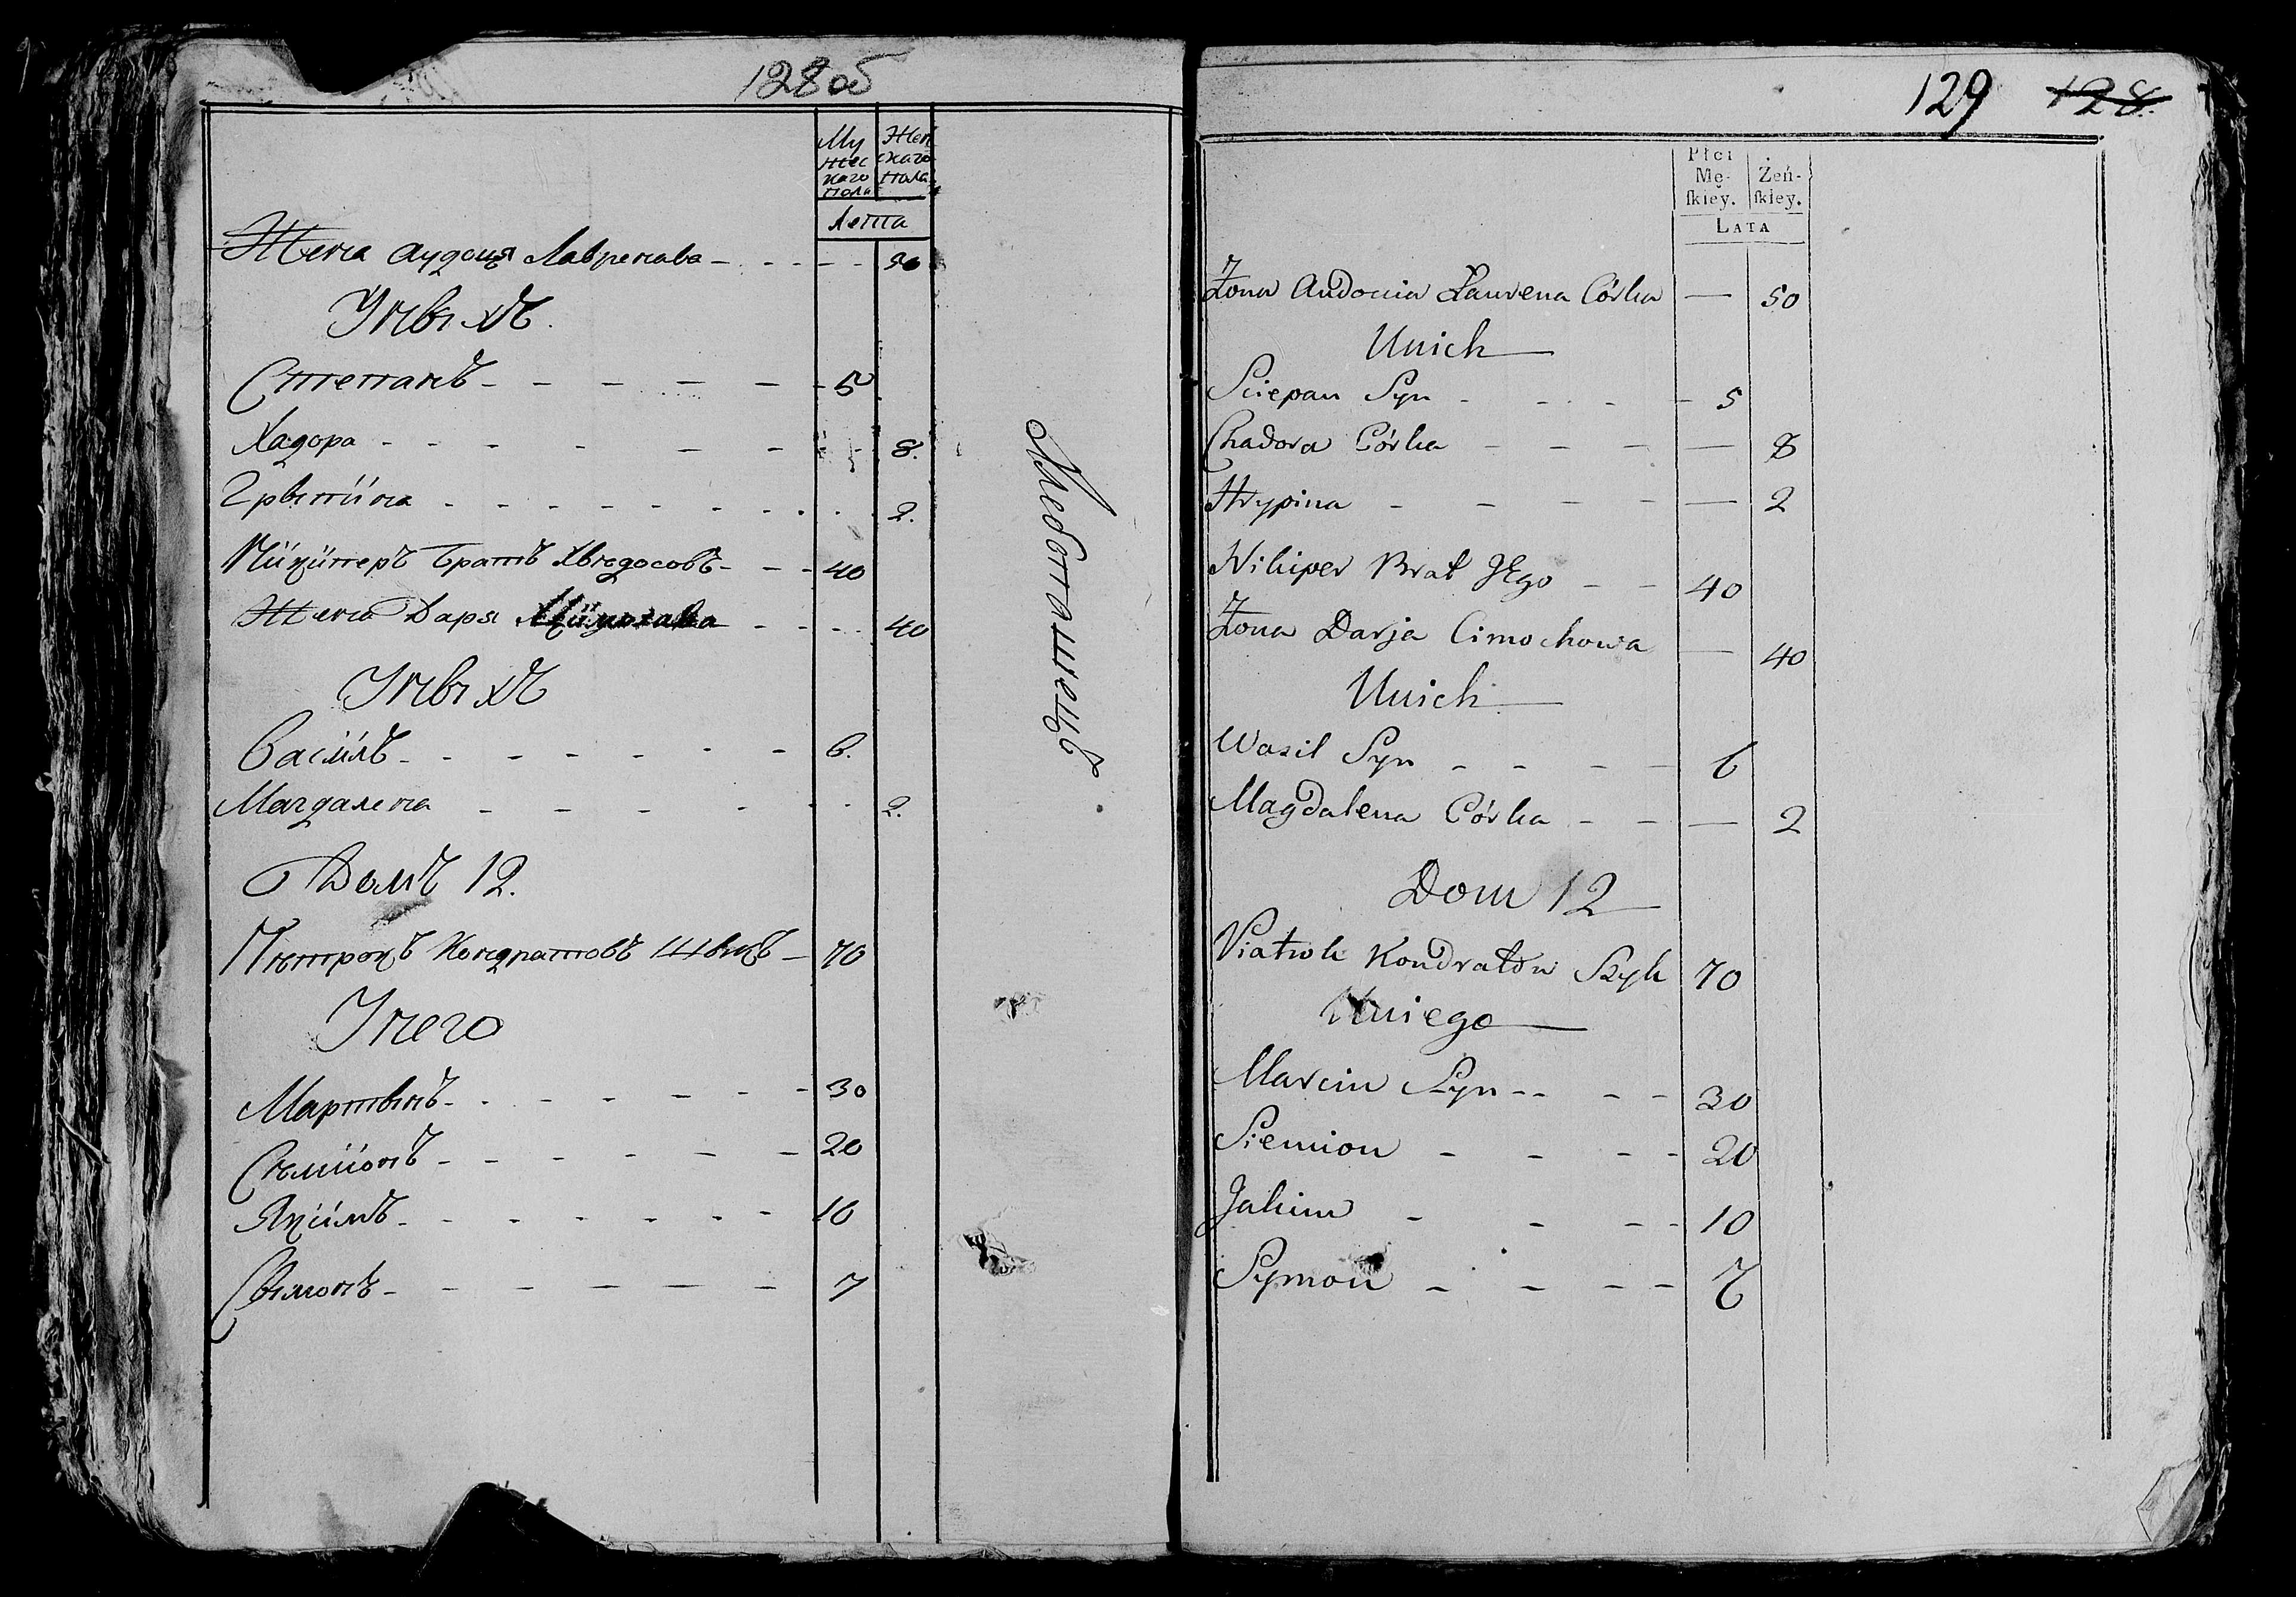 128об
Му
жес
каго
пола
Жен
скаго
пола
Лета
Жена Аудоця Лавренава - - - - - 50
Унвıхъ.
Степанъ - - - - - - 5
Хадора - - - - - - - 8.
Грыпіна - - - - - - - - - 2.
Нікіперъ братъ Хведосовъ - - - 40
Жена Даря - - - - 40
Унвıхъ
Васіль - - - - - - 6.
Магдалена - - - - - - 2.
Домъ 12.
Пётрокъ Кондратовъ Шыкъ - 70
Унего
Мартынъ - - - - - - - 30
Сѣміонъ - - - - - - 20
Якімъ - - - - - - - 10
Сымонъ - - - - - - 7
129 128.
Płci
Mę-
ſkiey.
Żeń-
ſkiey.
LATA
Żona Audocia Ławrena Córka — 50
Unich
Sciepan Syn - - - - 5
Chadora Córka - - - — 8
Hrypina - - - - — 2
Nikiper Brat Jego - - 40
Żona Darja Cimochowa — 40
Unich
Wasil Syn - - - - 6
Magdalena Córka - - — 2
Dom 12
Piatrok Kondratow Szyk 70
Uniego
Marcin Syn - - - - 30
Siemion - - - - 20
Jakim - - - - 10
Symon - - - - 7